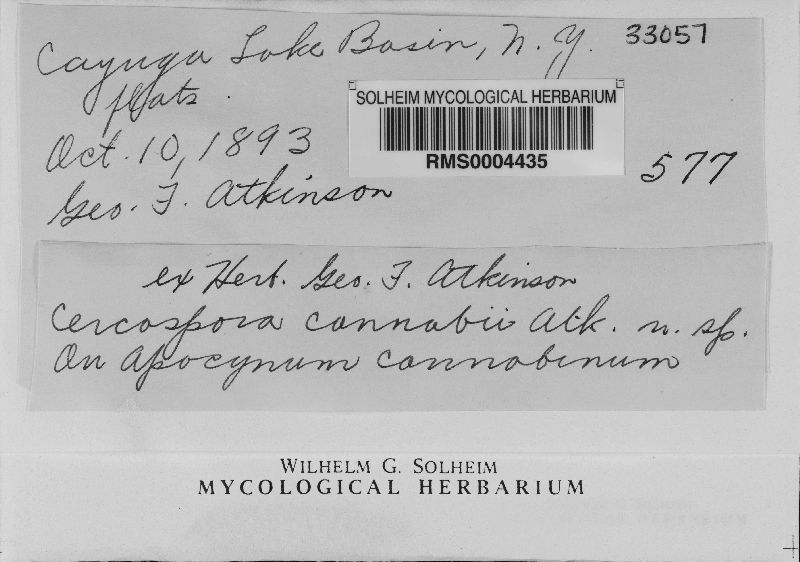 Cayuga Lake Basin, N. Y. 33057
flats.
SOLHEIM MYCOLOGICAL HERBARIUM
RMS0004435
Oct. 10, 1893
577
Geo. F. Atkinson
ex Herb. Geo. F. Atkinson
Cercospora cannabii Atk. n. sp.
On Apocynum cannabinum
WILHELM G. SOLHEIM
MYCOLOGICAL HERBARIUM